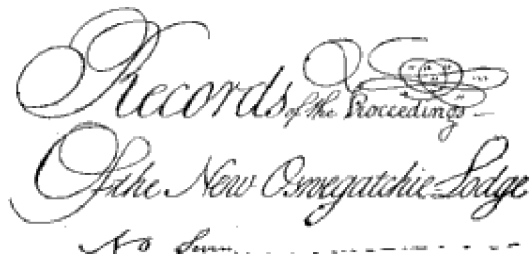 Records of the Proccedings
Of the New Oswegatchie Lodge
No Seven